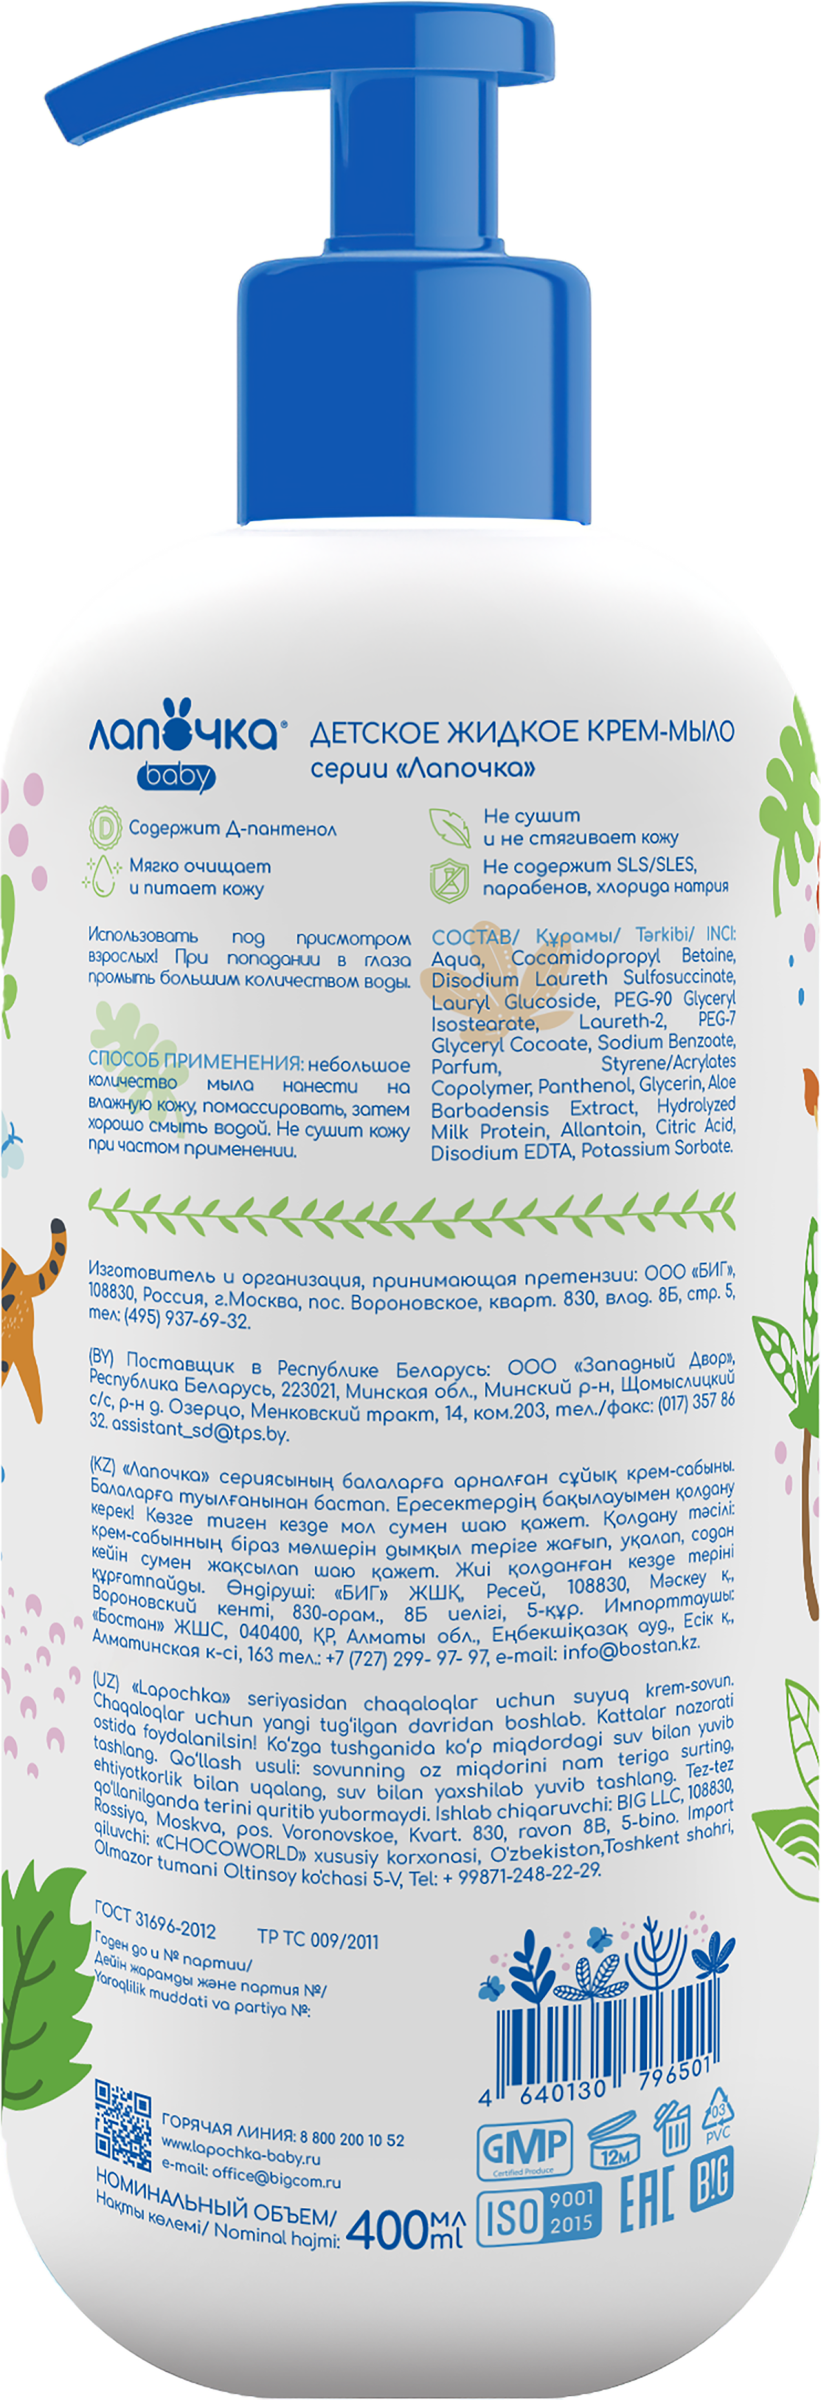 лапочка®
baby
ДЕТСКОЕ ЖИДКОЕ КРЕМ-МЫЛО
серии «Лапочка»
D
Содержит Д-пантенол
Не сушит
и не стягивает кожу
Мягко очищает
и питает кожу
Не содержит SLS/SLES,
парабенов, хлорида натрия
Использовать под присмотром
взрослых! При попадании в глаза
промыть большим количеством воды.
СПОСОБ ПРИМЕНЕНИЯ: небольшое
количество мыла нанести на
влажную кожу, помассировать, затем
хорошо смыть водой. Не сушит кожу
при частом применении.
СОСТАВ/ Құрамы/ Tarkibi/ INCI:
Aqua, Cocamidopropyl Betaine,
Disodium Laureth Sulfosuccinate,
Lauryl Glucoside, PEG-90 Glyceryl
Isostearate, Laureth-2, PEG-7
Glyceryl Cocoate, Sodium Benzoate,
Parfum, Styrene/Acrylates
Copolymer, Panthenol, Glycerin, Aloe
Barbadensis Extract, Hydrolyzed
Milk Protein, Allantoin, Citric Acid,
Disodium EDTA, Potassium Sorbate.
Изготовитель и организация, принимающая претензии: ООО «БИГ»,
108830, Россия, г.Москва, пос. Вороновское, кварт. 830, влад. 8Б, стр. 5,
тел: (495) 937-69-32.
(BY) Поставщик в Республике Беларусь: ООО «Западный Двор»,
Республика Беларусь, 223021, Минская обл., Минский р-н, Щомыслицкий
с/с, р-н д. Озерцо, Менковский тракт, 14, ком.203, тел./факс: (017) 357 86
32. assistant_sd@tps.by.
(KZ) «Лапочка» сериясының балаларға арналған сұйық крем-сабыны.
Балаларға туылғанынан бастап. Ересектердің бақылауымен қолдану
керек! Көзге тиген кезде мол сумен шаю қажет. Қолдану тәсілі:
крем-сабынның біраз мөлшерін дымқыл теріге жағып, уқалап, содан
кейін сумен жақсылап шаю қажет. Жиі қолданған кезде теріні
құрғатпайды. Өндіруші: «БИГ» ЖШҚ, Ресей, 108830, Мәскеу қ.,
Вороновский кенті, 830-орам., 8Б иелігі, 5-құр. Импорттаушы:
«Бостан» ЖШС, 040400, ҚР, Алматы обл., Еңбекшіқазақ ауд., Есік қ.,
Алматинская к-сі, 163 тел.: +7 (727) 299- 97- 97, e-mail: info@bostan.kz.
(UZ) «Lapochka» seriyasidan chaqaloqlar uchun suyuq krem-sovun.
Chaqaloqlar uchun yangi tug'ilgan davridan boshlab. Kattalar nazorati
ostida foydalanilsin! Ko'zga tushganida ko'p miqdordagi suv bilan yuvib
tashlang. Qo'llash usuli: sovunning oz miqdorini nam teriga surting,
ehtiyotkorlik bilan uqalang, suv bilan yaxshilab yuvib tashlang. Tez-tez
qo'llanilganda terini quritib yubormaydi. Ishlab chiqaruvchi: BIG LLC, 108830,
Rossiya, Moskva, pos. Voronovskoe, Kvart. 830, ravon 8B, 5-bino. Import
qiluvchi: «CHOCOWORLD» xususiy korxonasi, O'zbekiston,Toshkent shahri,
Olmazor tumani Oltinsoy ko'chasi 5-V, Tel: + 99871-248-22-29.
ГОСТ 31696-2012 ТР ТС 009/2011
Годен до и № партии/
Дейін жарамды және партия №/
Yaroqlilik muddati va partiya №:
4 640130 796501
ГОРЯЧАЯ ЛИНИЯ: 8 800 200 10 52
www.lapochka-baby.ru
e-mail: office@bigcom.ru
GMP
Certified Produce
12м
03
PVC
НОМИНАЛЬНЫЙ ОБЪЕМ/
Нақты көлемі/ Nominal hajmi:
400 мл
ml
ISO 9001
2015
EAC
B!G